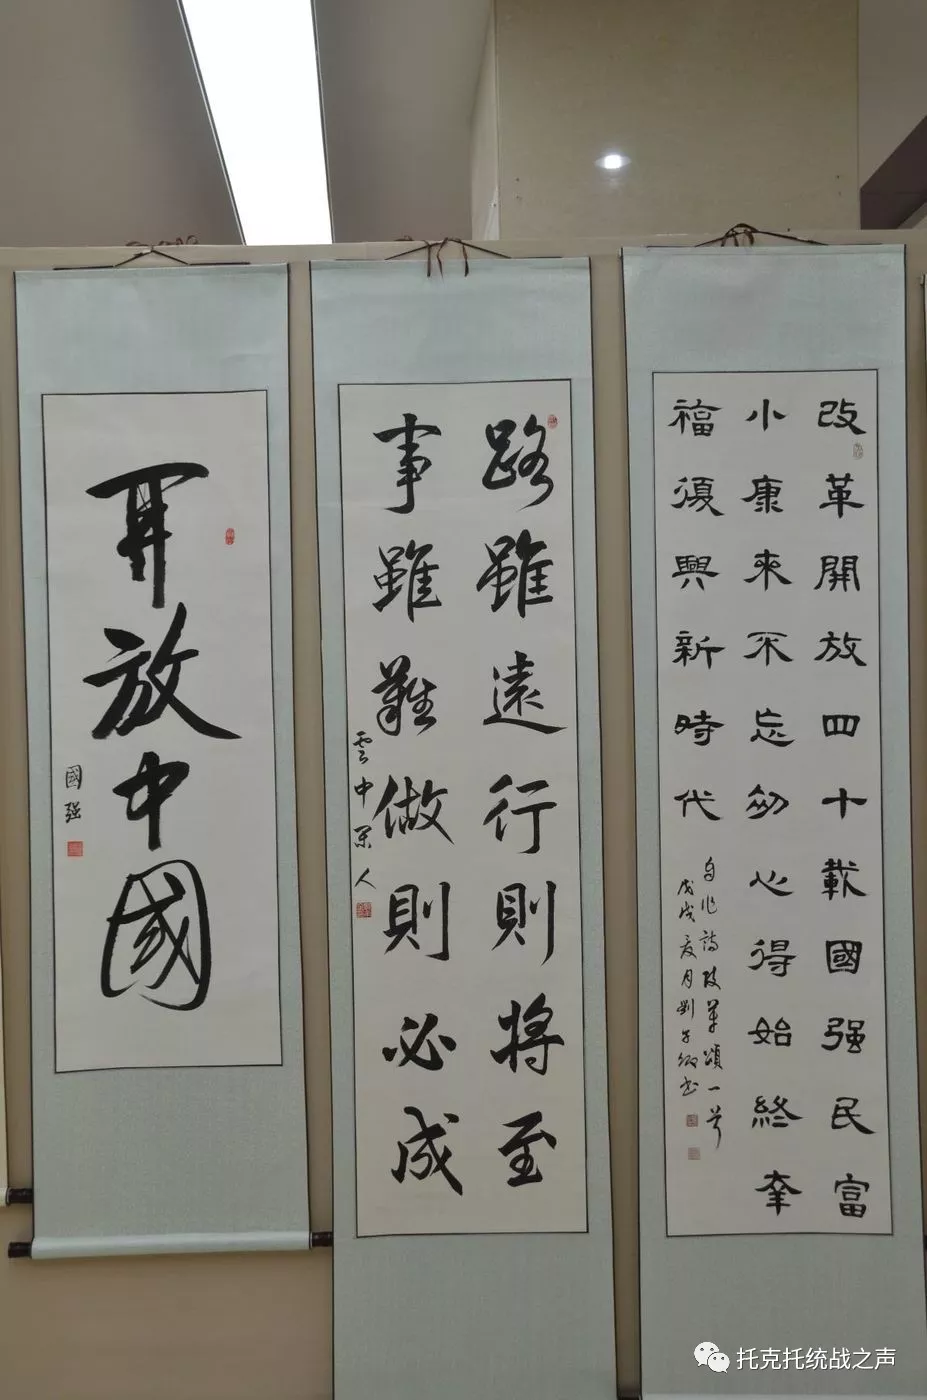 改革開放四十載國强民富
小康來不忘初心得始終奉
福復興新時代
自作詩改革頌一首
戊戌夏月劉子
書
路雖遠行則將至
事雖難做則必成
雲中
人
開放中國
國强
托克托统战之声